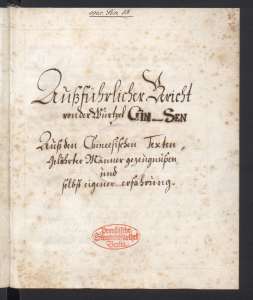 ms. sin. 18.
Außführlicher Bericht
von der Würtzel GIN=SEN
Auß den Chinesischen Texten,
Gelährter Männer gezeugnußen,
und
selbst eigener erfahrung.
Preußische
Staatsbibliothek
Berlin